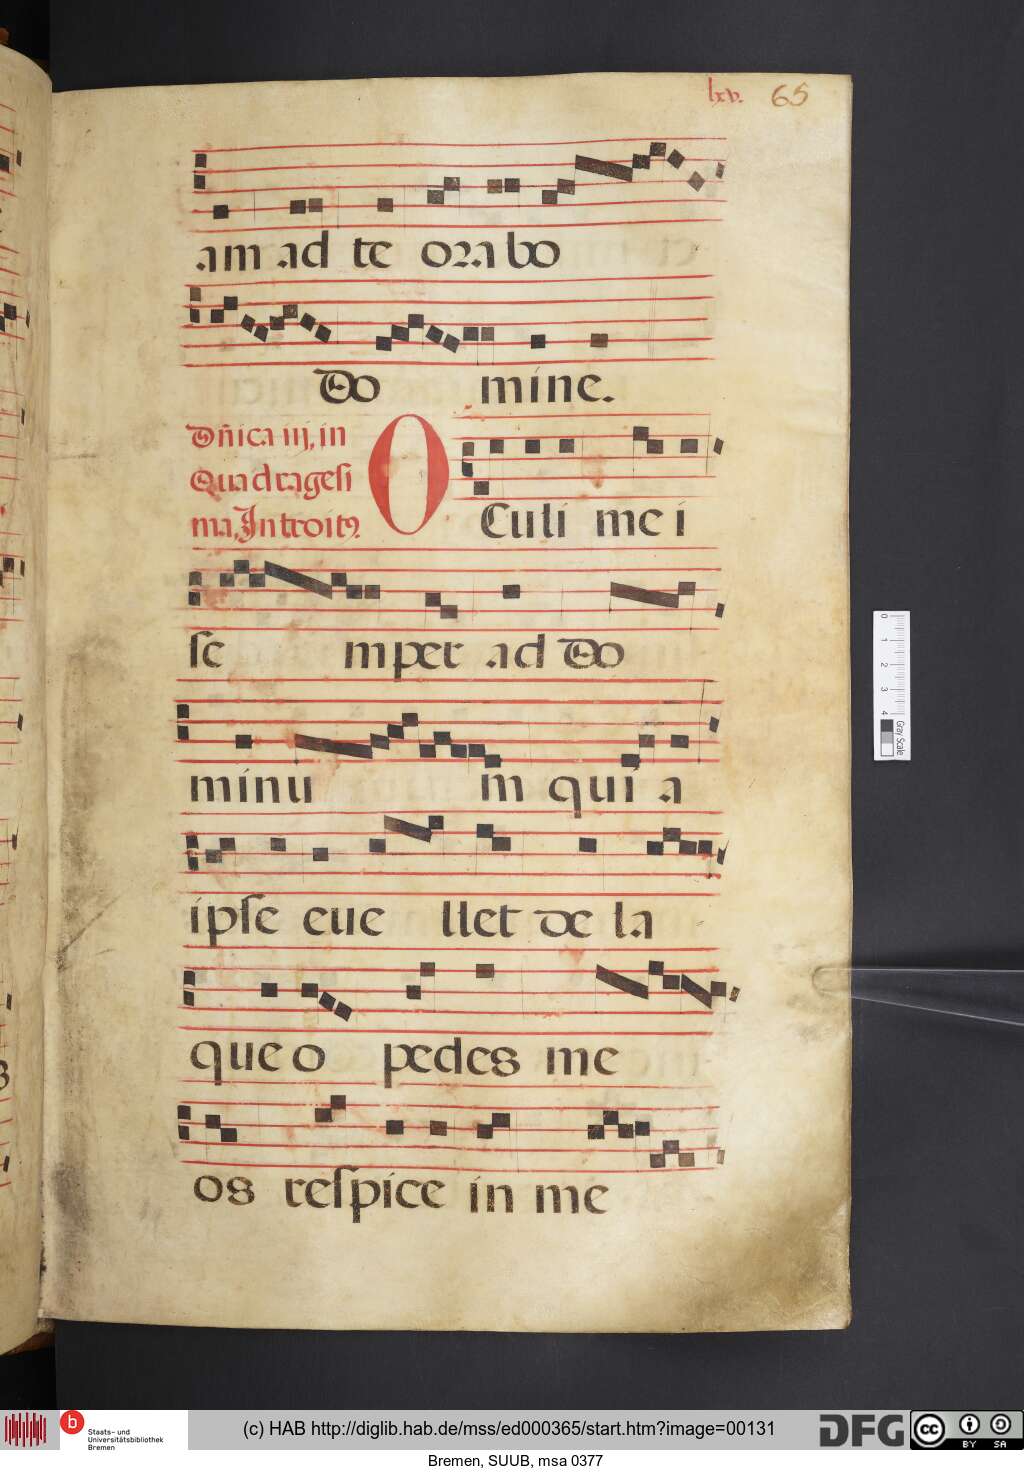 lxv. 65
am ad te orabo
Do mine.
Dñica iij, in
Quadragesi
ma, Introitꝰ.
OCuli mei
se mper ad Do
minu m qui a
ipse eue llet de la
queo pedes me
os respice in me
0 1 2 3 4
Gray Scale
b Staats- und
Universitätsbibliothek
Bremen
(c) HAB http://diglib.hab.de/mss/ed000365/start.htm?image=00131
DFG
cc BY SA
Bremen, SUUB, msa 0377